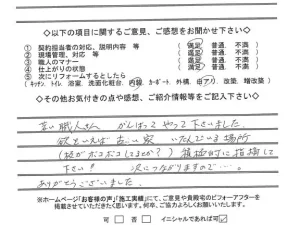 ◇以下の項目に関するご意見、ご感想をお聞かせ下さい◇
① 契約担当者の対応、説明内容 等 （満足 普通、不満 ）
② 現場管理、対応 等 （満足 普通、不満 ）
③ 職人のマナー （満足 普通、不満 ）
④ 仕上がりの状態 （満足 普通、不満 ）
⑤ 次にリフォームするとしたら
（キッチン、トイレ、浴室、洗面化粧台、内装、カーポート、外構、雨アリ、改築、増改築）
◇その他お気付きの点や感想、ご紹介情報等をご記入下さい◇
若い職人さん がんばって やって下さいました。
欲をいえば 古い家 いたんでいる場所
(柱がボコボコしてるとか?) 積極的に指摘して
下さい? 次につながりますので…。
ありがとうございました。
※ホームページ「お客様の声」「施工実績」にて、ご意見や貴殿宅のビフォーアフターを
掲載させていただきたく思います。何卒、ご協力よろしくお願いいたします。
可 否 イニシャルであれば可